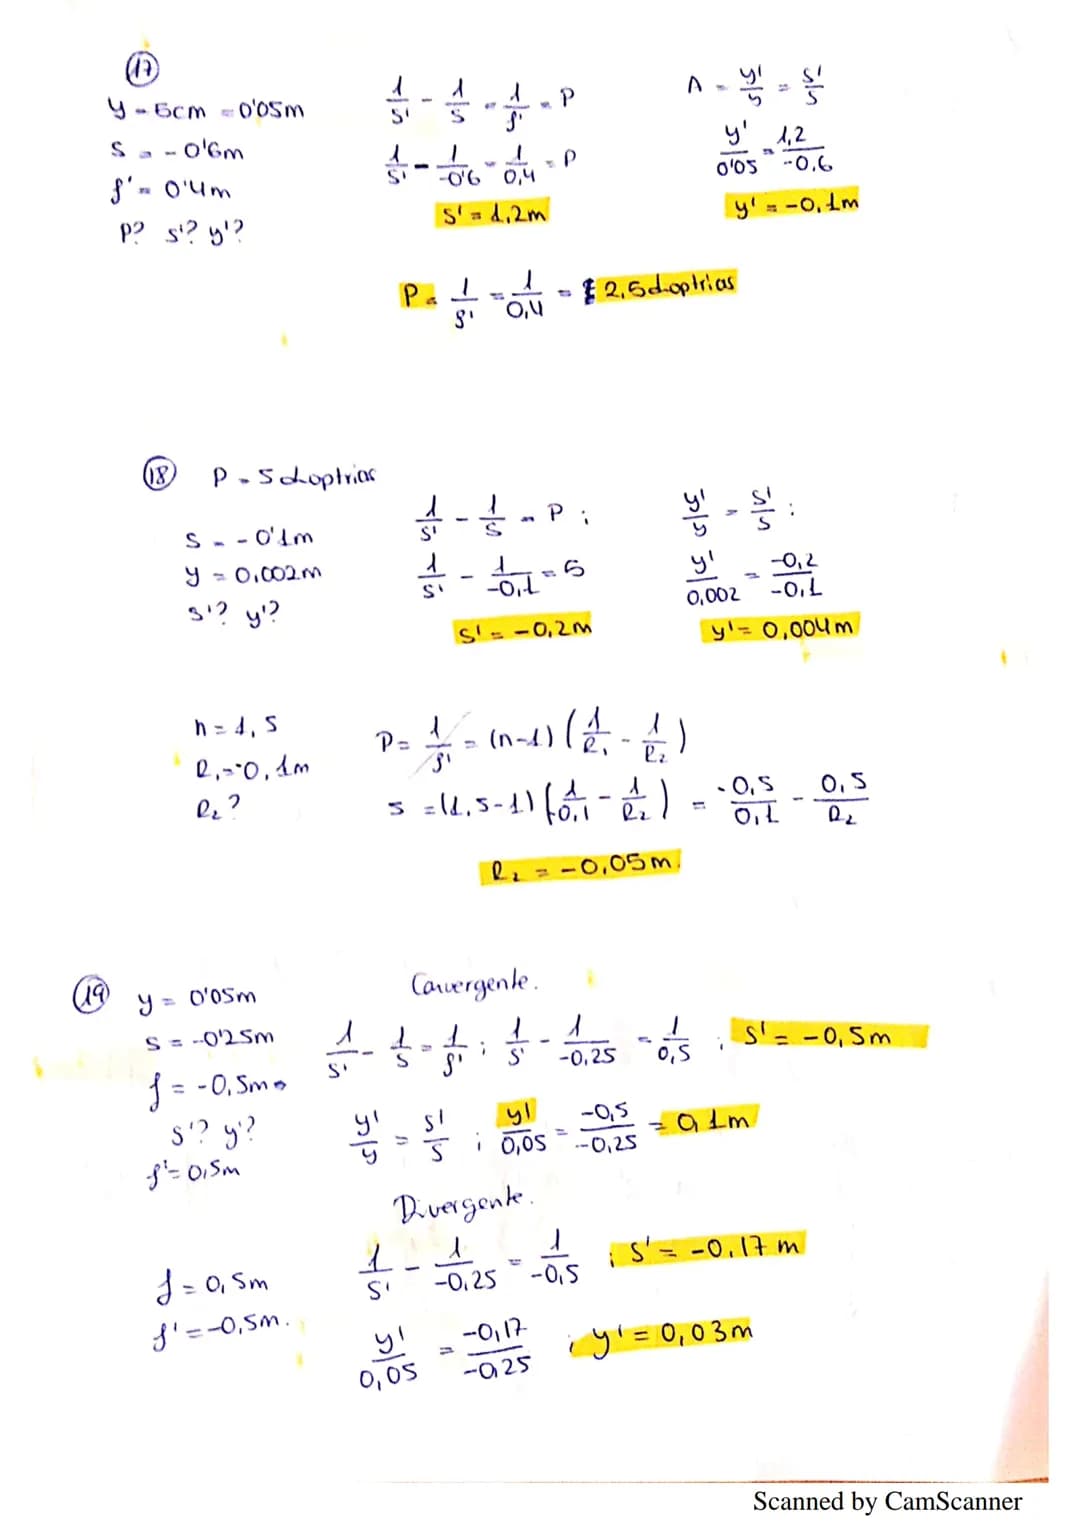 17
y = 5cm = 0'05m
s = -0'6m
f' = 0'4m
P? s'? y'?
1/s' - 1/s = 1/f' = P
1/s' - 1/-0'6 = 1/0,4 = P
s' = 1,2m
A = y'/y = s'/s
y'/0'05 = 1,2/-0,6
y' = -0,1m
P = 1/f' = 1/0,4 = 2,5 dioptrias
18 P = 5 dioptrias
s = -0'1m
y = 0,002m
s'? y'?
1/s' - 1/s = P ;
1/s' - 1/-0,1 = 5
s' = -0,2m
y'/y = s'/s ;
y'/0,002 = -0,2/-0,1
y' = 0,004m
n = 1,5
R₁ = -0,1m
R₂?
P = 1/f' = (n-1) (1/R₁ - 1/R₂)
5 = (1,5-1) (1/-0,1 - 1/R₂) = -0,5/0,1 - 0,5/R₂
R₂ = -0,05m.
19
y = 0'05m
s = -0'25m
f = -0,5m
s'? y'?
f' = 0,5m
Convergente.
1/s' - 1/s = 1/f' ; 1/s' - 1/-0,25 = 1/0,5 ; s' = -0,5m
y'/y = s'/s ; y'/0,05 = -0,5/-0,25 = 0,1m
Divergente.
f = 0,5m
f' = -0,5m.
1/s' - 1/-0,25 = 1/-0,5 ; s' = -0,17 m
y'/0,05 = -0,17/-0,25 ; y' = 0,03m
Scanned by CamScanner